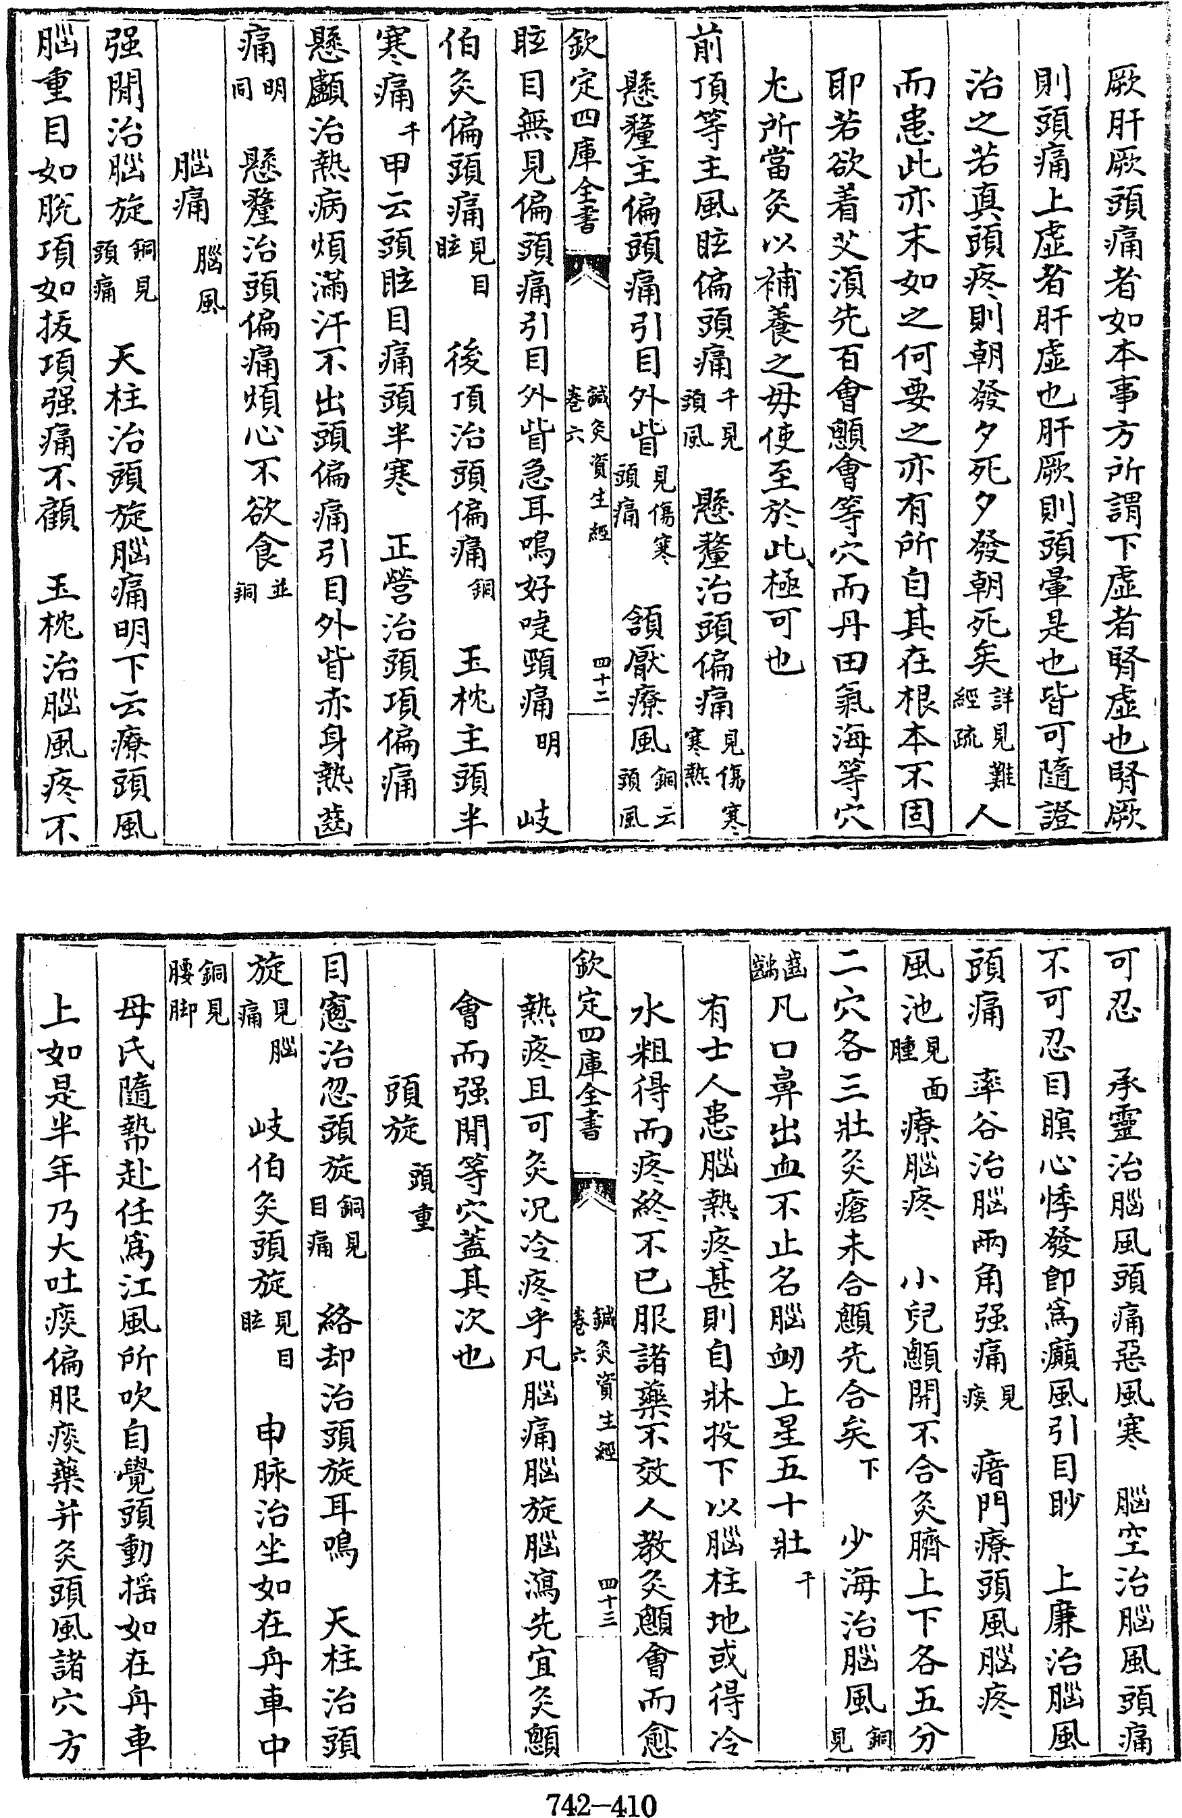 厥肝厥頭痛者如本事方所謂下虛者腎虛也腎厥
則頭痛上虛者肝虛也肝厥則頭暈是也皆可隨證
治之若真頭疼則朝發夕死夕發朝死矣詳見難經疏人
而患此亦末如之何要之亦有所自其在根本不固
耶若欲着艾湏先百會顖會等穴而丹田氣海等穴
尤所當灸以補養之毋使至於此極可也
前頂等主風眩偏頭痛千見頭風 懸釐治頭偏痛見傷寒寒熱
懸釐主偏頭痛引目外眥見傷寒頭痛 頷厭療風銅云頭風
欽定四庫全書 鍼灸資生經卷六 四十二
眩目無見偏頭痛引目外眥急耳鳴好嚏頸痛明 岐
伯灸偏頭痛見目眩 後頂治頭偏痛銅 玉枕主頭半
寒痛千甲云頭眩目痛頭半寒 正營治頭項偏痛
懸顱治熱病煩滿汗不出頭偏痛引目外眥赤身熱齒
痛明同 懸釐治頭偏痛煩心不欲食並銅
腦痛 腦風
强間治腦旋銅見頭痛 天柱治頭旋腦痛明下云療頭風
腦重目如脫項如拔項强痛不顧 玉枕治腦風疼不
可忍 承靈治腦風頭痛惡風寒 腦空治腦風頭痛
不可忍目瞑心悸發即為癲風引目眇 上廉治腦風
頭痛 率谷治腦兩角强痛見痰 瘖門療頭風腦疼
風池見面腫療腦疼 小兒顖開不合灸臍上下各五分
二穴各三壯灸瘡未合顖先合矣下 少海治腦風銅見
齒齲凡口鼻出血不止名腦衂上星五十壯千
有士人患腦熱疼甚則自牀投下以腦柱地或得冷
水粗得而疼終不已服諸藥不效人教灸顖會而愈
欽定四庫全書 鍼灸資生經卷六 四十三
熱疼且可灸況冷疼乎凡腦痛腦旋腦瀉先宜灸顖
會而强間等穴蓋其次也
頭旋 頭重
目窻治忽頭旋銅見目痛 絡却治頭旋耳鳴 天柱治頭
旋見腦痛 岐伯灸頭旋見目眩 申脉治坐如在舟車中
銅見腰脚
母氏隨勢赴任為江風所吹自覺頭動揺如在舟車
上如是半年乃大吐痰偏服痰藥并灸頭風諸穴方
742–410